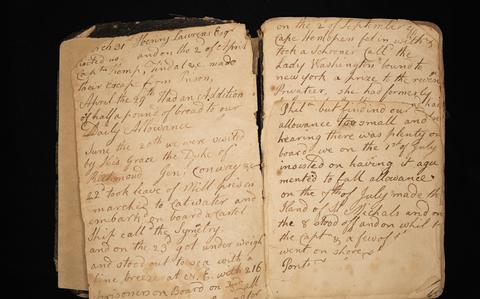 March 31st Henry Laurens Esqr
and on the 2 of April
Captn Kemp, Tindal &c. made
their Escape from Prison,
April the 29th Had an Addition
of half a pound of bread to our
Daily Allowance
June the 20th we were visited
by his Grace the Duke of
Richmond Gen; Conway &c
22d took leave of Mill prison
marched to Catwater and
embark'd on board a Cartel
Ship call'd the Symetry.
and on the 23 got under weigh
and stood out to sea with a
fine breeze at N. E. with 216
prisoners on Board on
on the 2 of September
Cape Henlopen fel in with &
took a Schooner Call'd the
Lady Washington bound to
new york a prize to the
Privateer, she had formerly
Phila but finding our
allowance too small and
hearing there was plenty on
board, we on the 1st of July
insisted on having it aug
mented to full allowance
on the 7th of July made the
Island of St Michals and on
the 8 stood off and on whilst
the Capt & a few of
went on shore
Pont